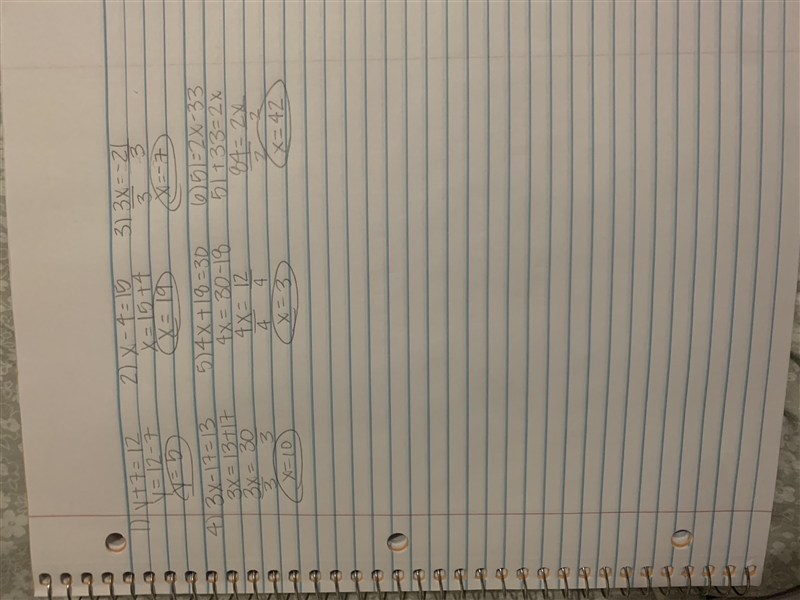 1) y+7=12
y=12-7
y=5
2) x-4=15
x=15+4
x=19
3) 3x=-21
3 3
x=-7
4) 3x-17=13
3x=13+17
3x=30
3 3
x=10
5) 4x+18=30
4x=30-18
4x=12
4 4
x=3
6) 51=2x-33
51+33=2x
84=2x
2 2
x=42